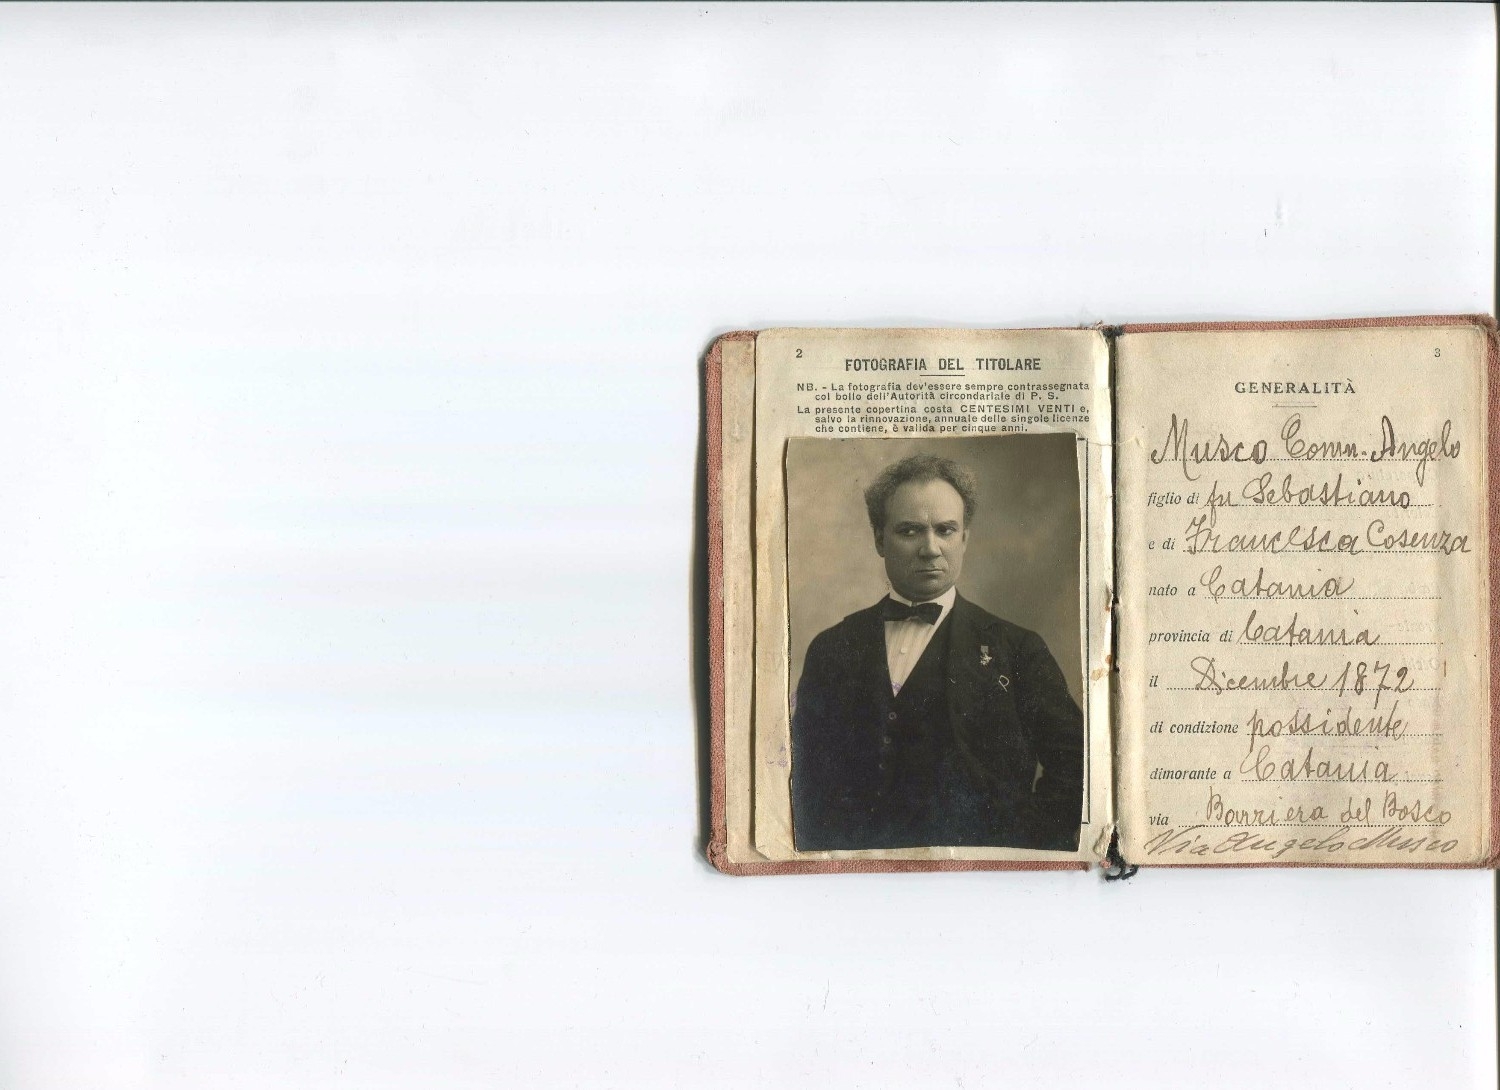 2
FOTOGRAFIA DEL TITOLARE
NB. - La fotografia dev'essere sempre contrassegnata
col bollo dell'Autorità circondariale di P. S.
La presente copertina costa CENTESIMI VENTI e,
salvo la rinnovazione, annuale delle singole licenze
che contiene, è valida per cinque anni.
3
GENERALITÀ
Musco Comm. Angelo
figlio di fu Sebastiano
e di Francesca Cosenza
nato a Catania
provincia di Catania
il Dicembre 1872
di condizione possidente
dimorante a Catania
via Barriera del Bosco
Via Angelo Musco